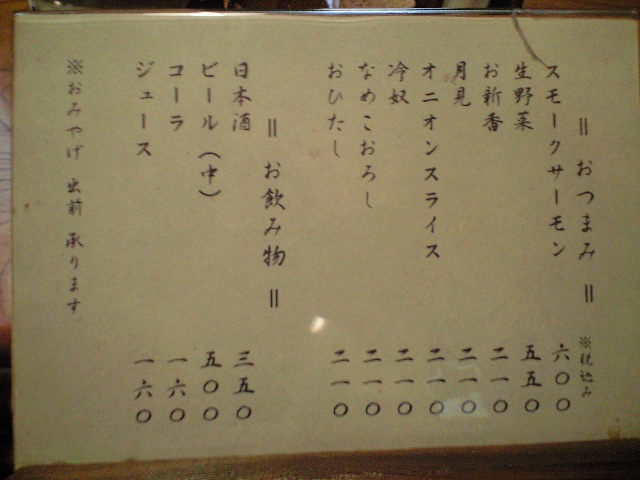 ＝ おつまみ ＝ ※税込み
スモークサーモン 六〇〇
生野菜 五五〇
お新香 二一〇
月見 二一〇
オニオンスライス 二一〇
冷奴 二一〇
なめこおろし 二一〇
おひたし 二一〇
＝ お飲み物 ＝
日本酒 三五〇
ビール（中） 五〇〇
コーラ 一六〇
ジュース 一六〇
※おみやげ 出前 承ります